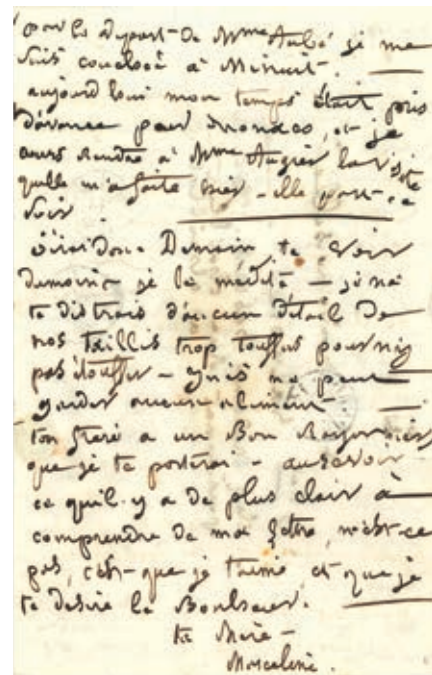 le départ de Mme Aubé je me
suis couchée à Minuit.
aujourd'hui mon temps était pris
d'avance par et je
cours rendre à Mme Augier la visite
quelle m'a faite hier - elle part ce
soir
j'irai donc Demain te voir
dumoins je le médite - je ne
te distrais d'aucun détail De
nos taillis trop touffus pour n'y
pas étouffer - ne peut
garder aucun aliment.
ton frère a un Bon
que je te porterai - au revoir
ce quil y a de plus clair à
comprendre de ma lettre, n'est-ce
pas, c'est que je t'aime et que je
te désire le Bonheur.
ta Mère -
Marceline.